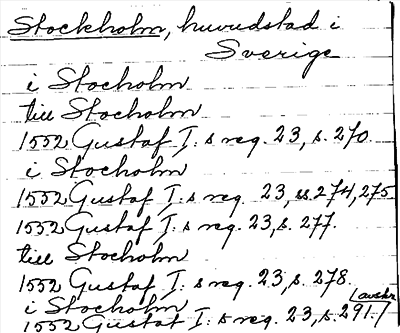 Stockholm, huvudstad i
Sverige
i Stocholm
till Stocholm
1552 Gustaf I:s reg. 23, s. 270.
i Stocholm
1552 Gustaf I:s reg. 23, ss. 274, 275
1552 Gustaf I:s reg. 23, s. 277.
till Stocholm
1552 Gustaf I:s reg. 23, s. 278.
i Stocholm (avskr.)
1552 Gustaf I:s reg. 23, s. 291.